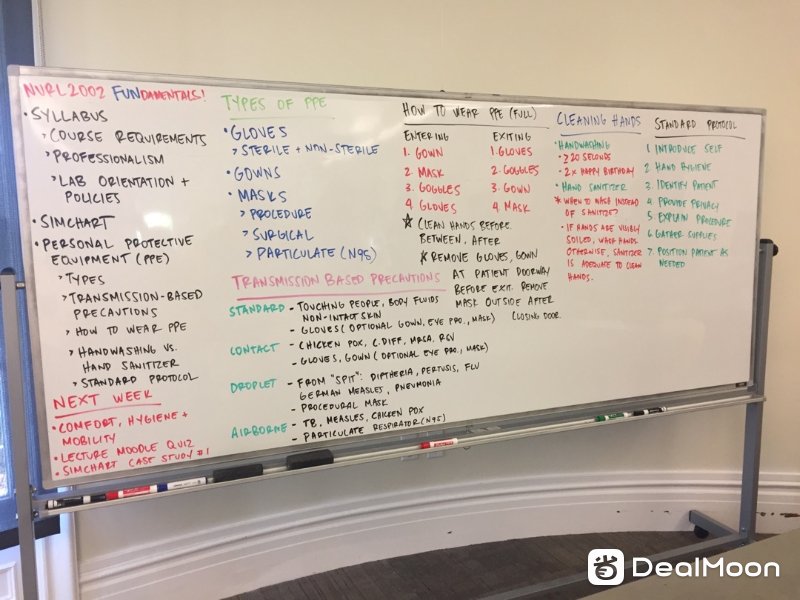 NURL2002 FUNDAMENTALS!
• SYLLABUS
> COURSE REQUIREMENTS
> PROFESSIONALISM
> LAB ORIENTATION +
POLICIES
• SIMCHART
• PERSONAL PROTECTIVE
EQUIPMENT (PPE)
> TYPES
> TRANSMISSION-BASED
PRECAUTIONS
> HOW TO WEAR PPE
> HANDWASHING VS.
HAND SANITIZER
> STANDARD PROTOCOL
NEXT WEEK
• COMFORT, HYGIENE +
MOBILITY
• LECTURE MOODLE QUIZ
• SIMCHART CASE STUDY #1
TYPES OF PPE
• GLOVES
> STERILE + NON-STERILE
• GOWNS
• MASKS
> PROCEDURE
> SURGICAL
> PARTICULATE (N95)
TRANSMISSION BASED PRECAUTIONS
STANDARD - TOUCHING PEOPLE, BODY FLUIDS
NON-INTACT SKIN
- GLOVES (OPTIONAL GOWN, EYE PRO., MASK)
CONTACT - CHICKEN POX, C.DIFF, MRCA, RCV
- GLOVES, GOWN (OPTIONAL EYE PRO., MASK)
DROPLET - FROM "SPIT": DIPTHERIA, PERTUSIS, FLU
GERMAN MEASLES, PNEUMONIA
- PROCEDURAL MASK
AIRBORNE - TB, MEASLES, CHICKEN POX
- PARTICULATE RESPIRATOR (N95)
HOW TO WEAR PPE (FULL)
ENTERING
1. GOWN
2. MASK
3. GOGGLES
4. GLOVES
EXITING
1. GLOVES
2. GOGGLES
3. GOWN
4. MASK
☆ CLEAN HANDS BEFORE
BETWEEN, AFTER
☆ REMOVE GLOVES, GOWN
AT PATIENT DOORWAY
BEFORE EXIT. REMOVE
MASK OUTSIDE AFTER
CLOSING DOOR.
CLEANING HANDS
• HANDWASHING
• ≥20 SECONDS
• 2x HAPPY BIRTHDAY
• HAND SANITIZER
* WHEN TO WASH INSTEAD
OF SANITIZE?
• IF HANDS ARE VISIBLY
SOILED, WASH HANDS.
OTHERWISE, SANITIZER
IS ADEQUATE TO CLEAN
HANDS.
STANDARD PROTOCOL
1. INTRODUCE SELF
2. HAND HYGIENE
3. IDENTIFY PATIENT
4. PROVIDE PRIVACY
5. EXPLAIN PROCEDURE
6. GATHER SUPPLIES
7. POSITION PATIENT AS
NEEDED
DealMoon